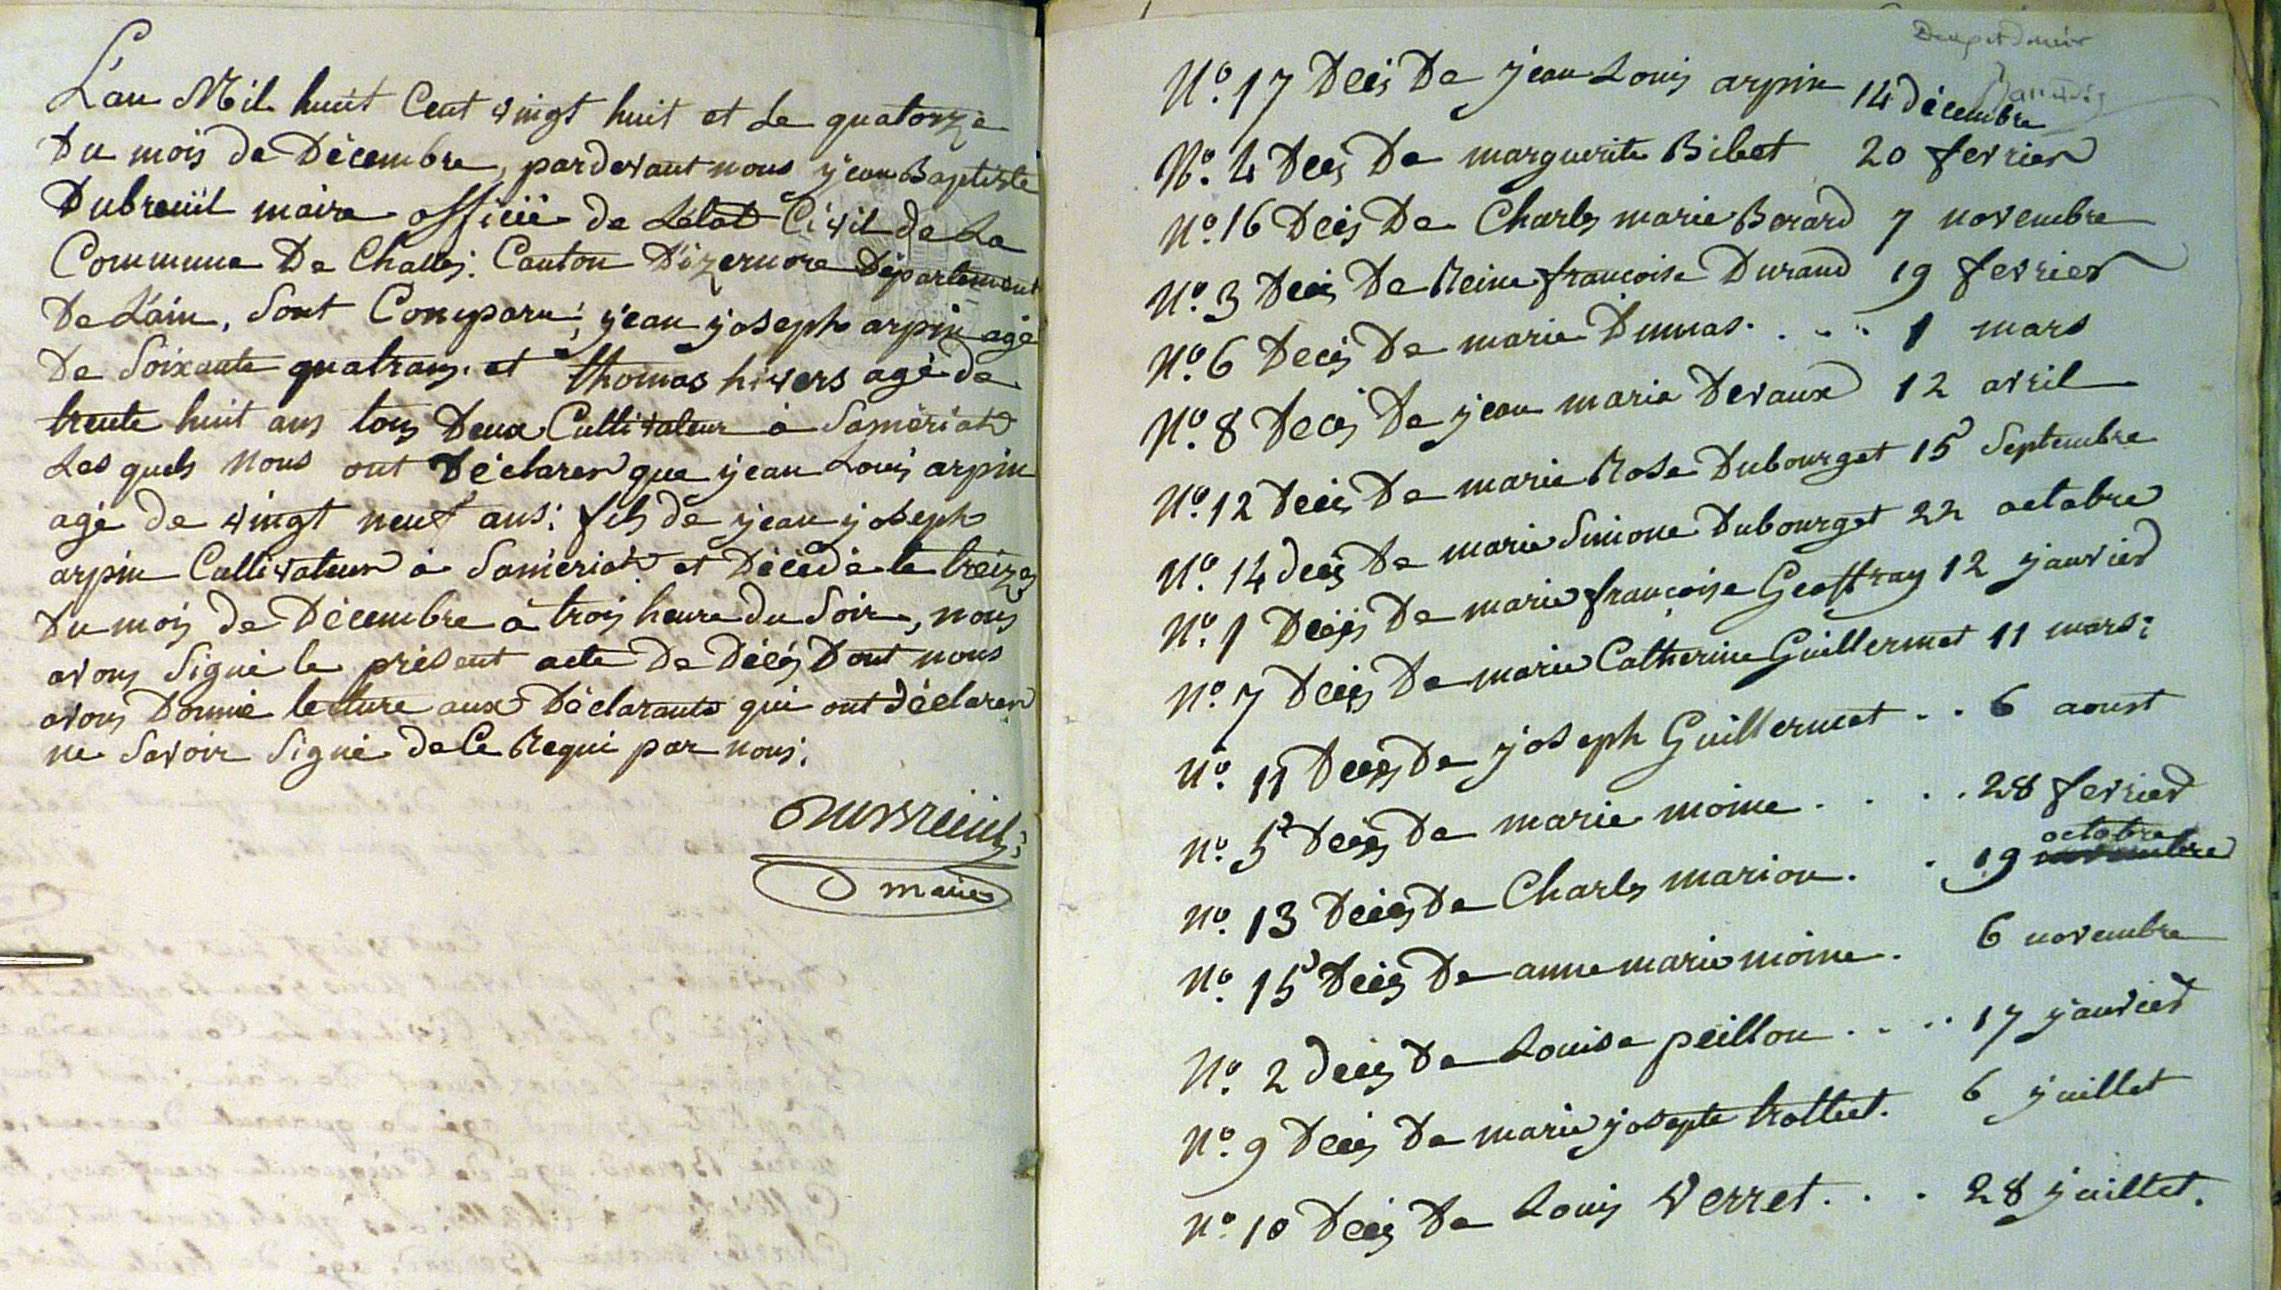 L'an Mil huit Cent vingt huit et Le quatorze
Du mois de Décembre, pardevant nous jean Baptiste
Dubreüil maire officié de Létat Civil de La
Commune De Challes. Canton D'izernore Département
De L'ain, Sont Comparu; jean joseph arpin agé
De Soixante quatrans. et thomas hivers agé de
trente huit ans tous Deux Cultivateur à Samériat
Les quels Nous ont Déclarer que jean Louis arpin
agé de vingt neuf ans; fils de jean joseph
arpin Cultivateur à Samériat et Décédé le treize
Du mois De Décembre à trois heure du Soir, nous
avons Signé le présent acte De Décés Dont nous
avons Donnié lecture aux Déclarants qui ont déclarer
ne Savoir Signé de Ce Requi par nous.
Dubreüil
maire
N° 17 Décès De jean Louis arpin 14 décembre
N°. 4 Décés De marguerite Bibet 20 fevrier
N°. 16 Décés De Charles marie Berard 7 novembre
N°. 3 Décés De Reine francoise Durand 19 fevrier
N°. 6 Décés De marie Dumas. . . . 1 mars
N°. 8 Décés De jean marie Devaux 12 avril
N°. 12 Décés De marie Rose Dubourget 15 Septembre
N°. 14 décés De marie Simone Dubourget 22 octobre
N°. 1 Décés De marie françoise Geoffray 12 janvier
N°. 7 Décés De marie Catherine Guillermet 11 mars;
N°. 11 Décés De joseph Guillermet . . 6 aoust
N°. 5 Décés De marie moine . . . . 28 fevrier
octobre
N°. 13 Décés De Charles marion. . 19 novembre
N°. 15 Décés De anne marie moine. 6 novembre
N°. 2 décés De Louise peillon . . . . 17 janvier
N°. 9 Décés De marie josepte trottet. 6 juillet
N°. 10 Décés De Louis Verret. . . 28 juillet.